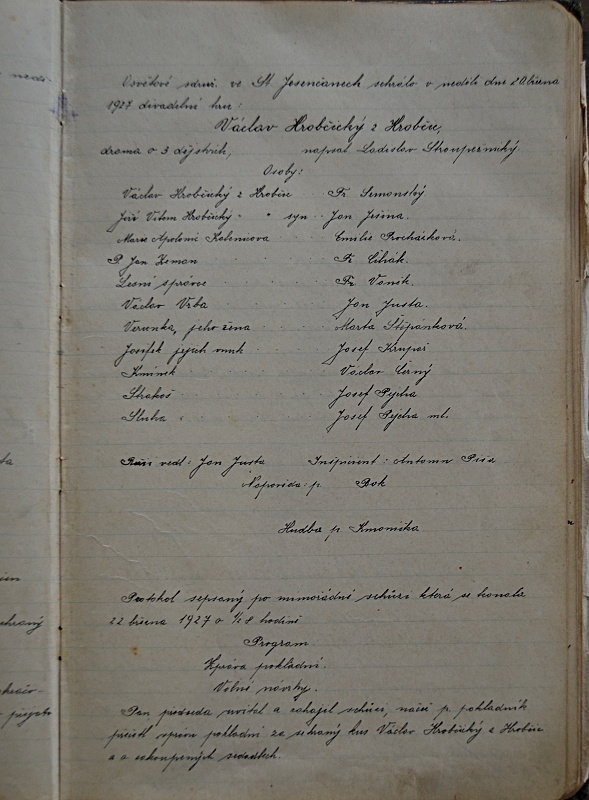 Osvětové sdruž. ve St. Jesenčanech sehrálo v neděli dne 20. března
1927 divadelní hru:
Václav Hrobčický z Hrobčic,
drama o 3 dějstvích, napsal Ladislav Stroupežnický.
Osoby:
Václav Hrobčický z Hrobčic Fr. Semonský
Jiří Vilem Hrobčický " " syn Jan
Marie Apolonie Emilie Procházková.
P. Jan Zeman Fr. Cihák.
Lesní správce Fr. Vaník.
Václav Vrba Jan Justa.
Verunka, jeho žena Marta Štěpánková.
Josífek jejich vnuk Josef Krupař
Kmínek Václav Černý
Strakoš Josef Pýcha
Sluha Josef Pýcha ml.
Režii vedl: Jan Justa Inspicient: Antonín
Nápověda: p. Bok
Hudba p. Kmoníčka
Protokol sepsaný po mimořádní schůzi která se konala
22 března 1927 o ½ 8 hodině
Program.
Zpráva pokladní.
Volné návrhy.
Pan předseda uvítal a zahájil schůzi, načež p. pokladník
přečetl zprávu pokladní za sehraný kus Václav Hrobčický z Hrobčic
a o zakoupených sedadlech.